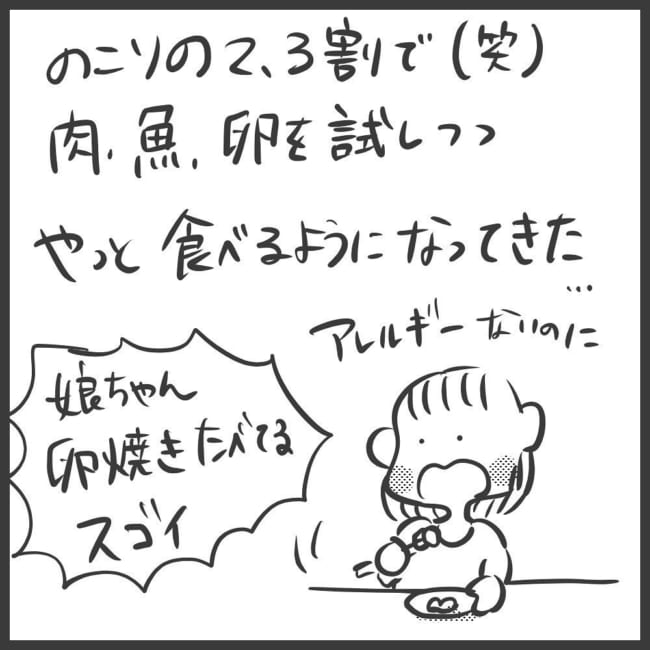 のこりの2、3割で(笑)
肉、魚、卵を試しつつ
やっと食べるようになってきた…
アレルギーないのに
娘ちゃん
卵焼きたべてる
スゴイ